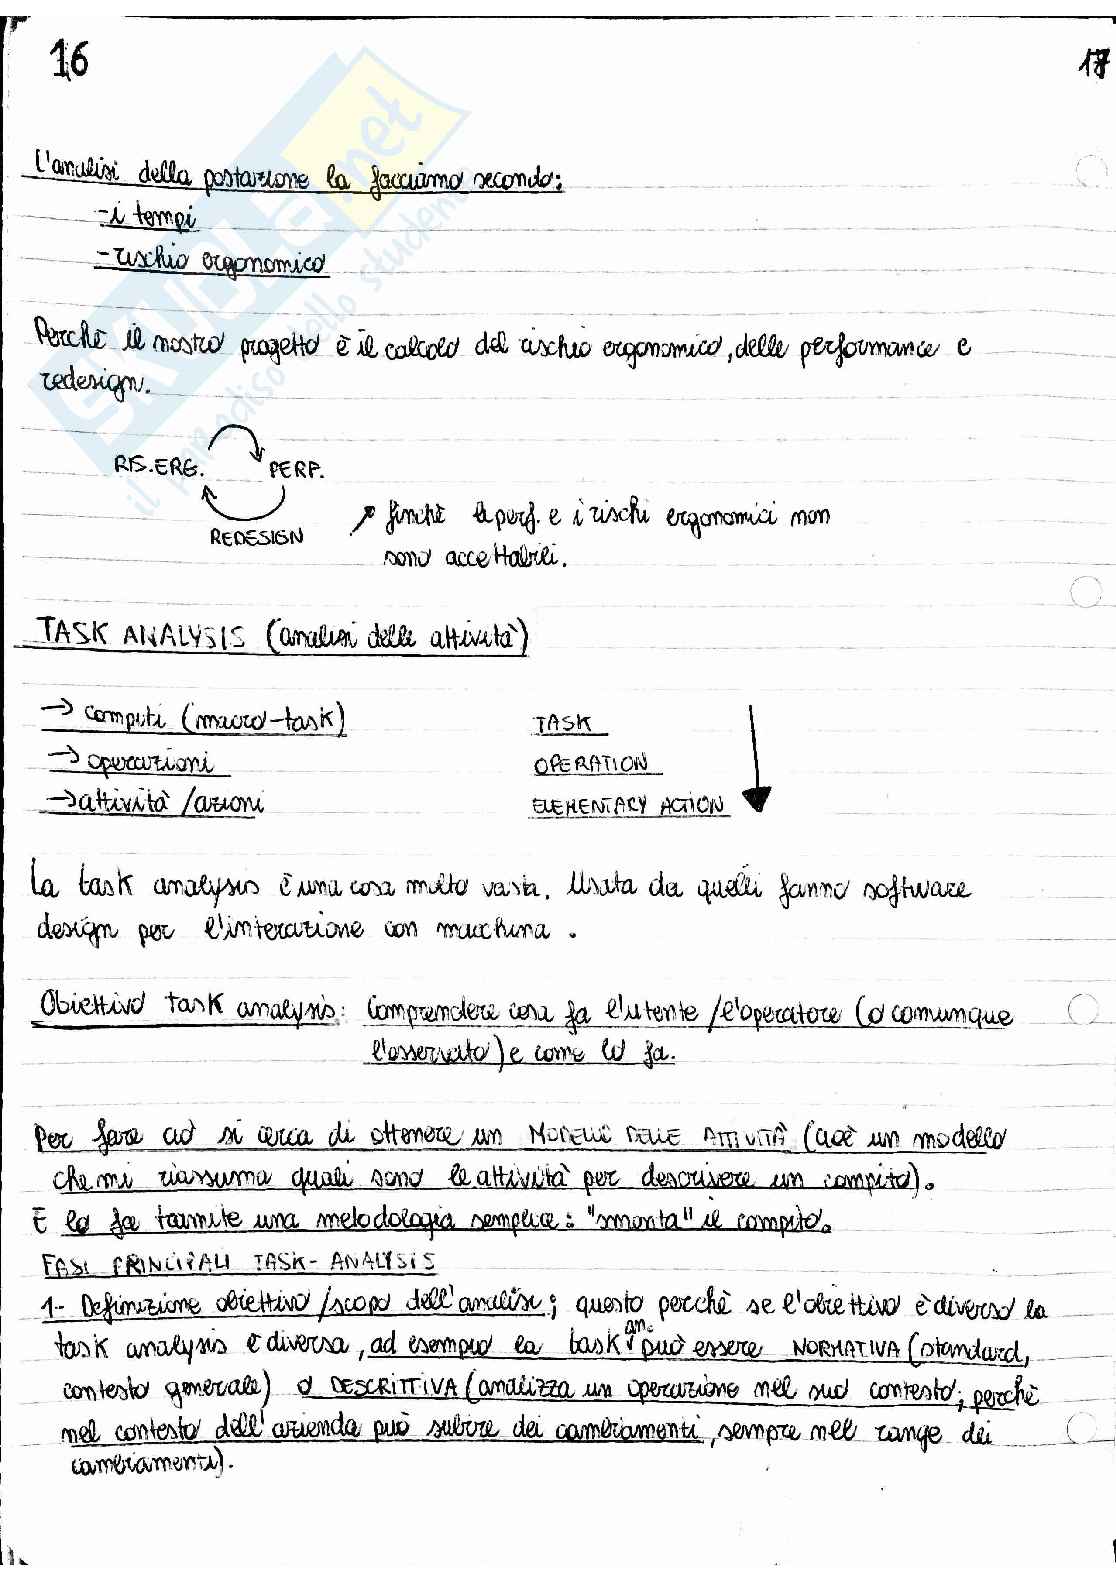 16
17
L'analisi della postazione la facciamo secondo:
-i tempi
-rischio ergonomico
Perchè il nostro progetto è il calcolo del rischio ergonomico, delle performance e
redesign.
RIS.ERG. PERF.
REDESIGN
finchè le perf. e i rischi ergonomici non
sono accettabili.
TASK ANALYSIS (analisi delle attività)
→ compiti (macro-task) TASK
→ operazioni OPERATION
→ attività /azioni ELEMENTARY ACTION
La task analysis è una cosa molto vasta. Usata da quelli fanno software
design per l'interazione con macchina.
Obiettivo task analysis: Comprendere cosa fa l'utente /l'operatore (o comunque
l'osservato) e come lo fa.
Per fare ciò si cerca di ottenere un MODELLO DELLE ATTIVITÀ (cioè un modello
che mi riassuma quali sono le attività per descrivere un compito).
E lo fa tramite una metodologia semplice: "smonta" il compito.
FASI PRINCIPALI TASK-ANALYSIS
1- Definizione obiettivo /scopo dell'analisi; questo perchè se l'obiettivo è diverso la
task analysis è diversa, ad esempio la task an. può essere NORMATIVA (standard,
contesto generale) o DESCRITTIVA (analizza un operazione nel suo contesto; perchè
nel contesto dell'azienda può subire dei cambiamenti, sempre nel range dei
cambiamenti).
SKUOLA.net
il paradiso dello studente